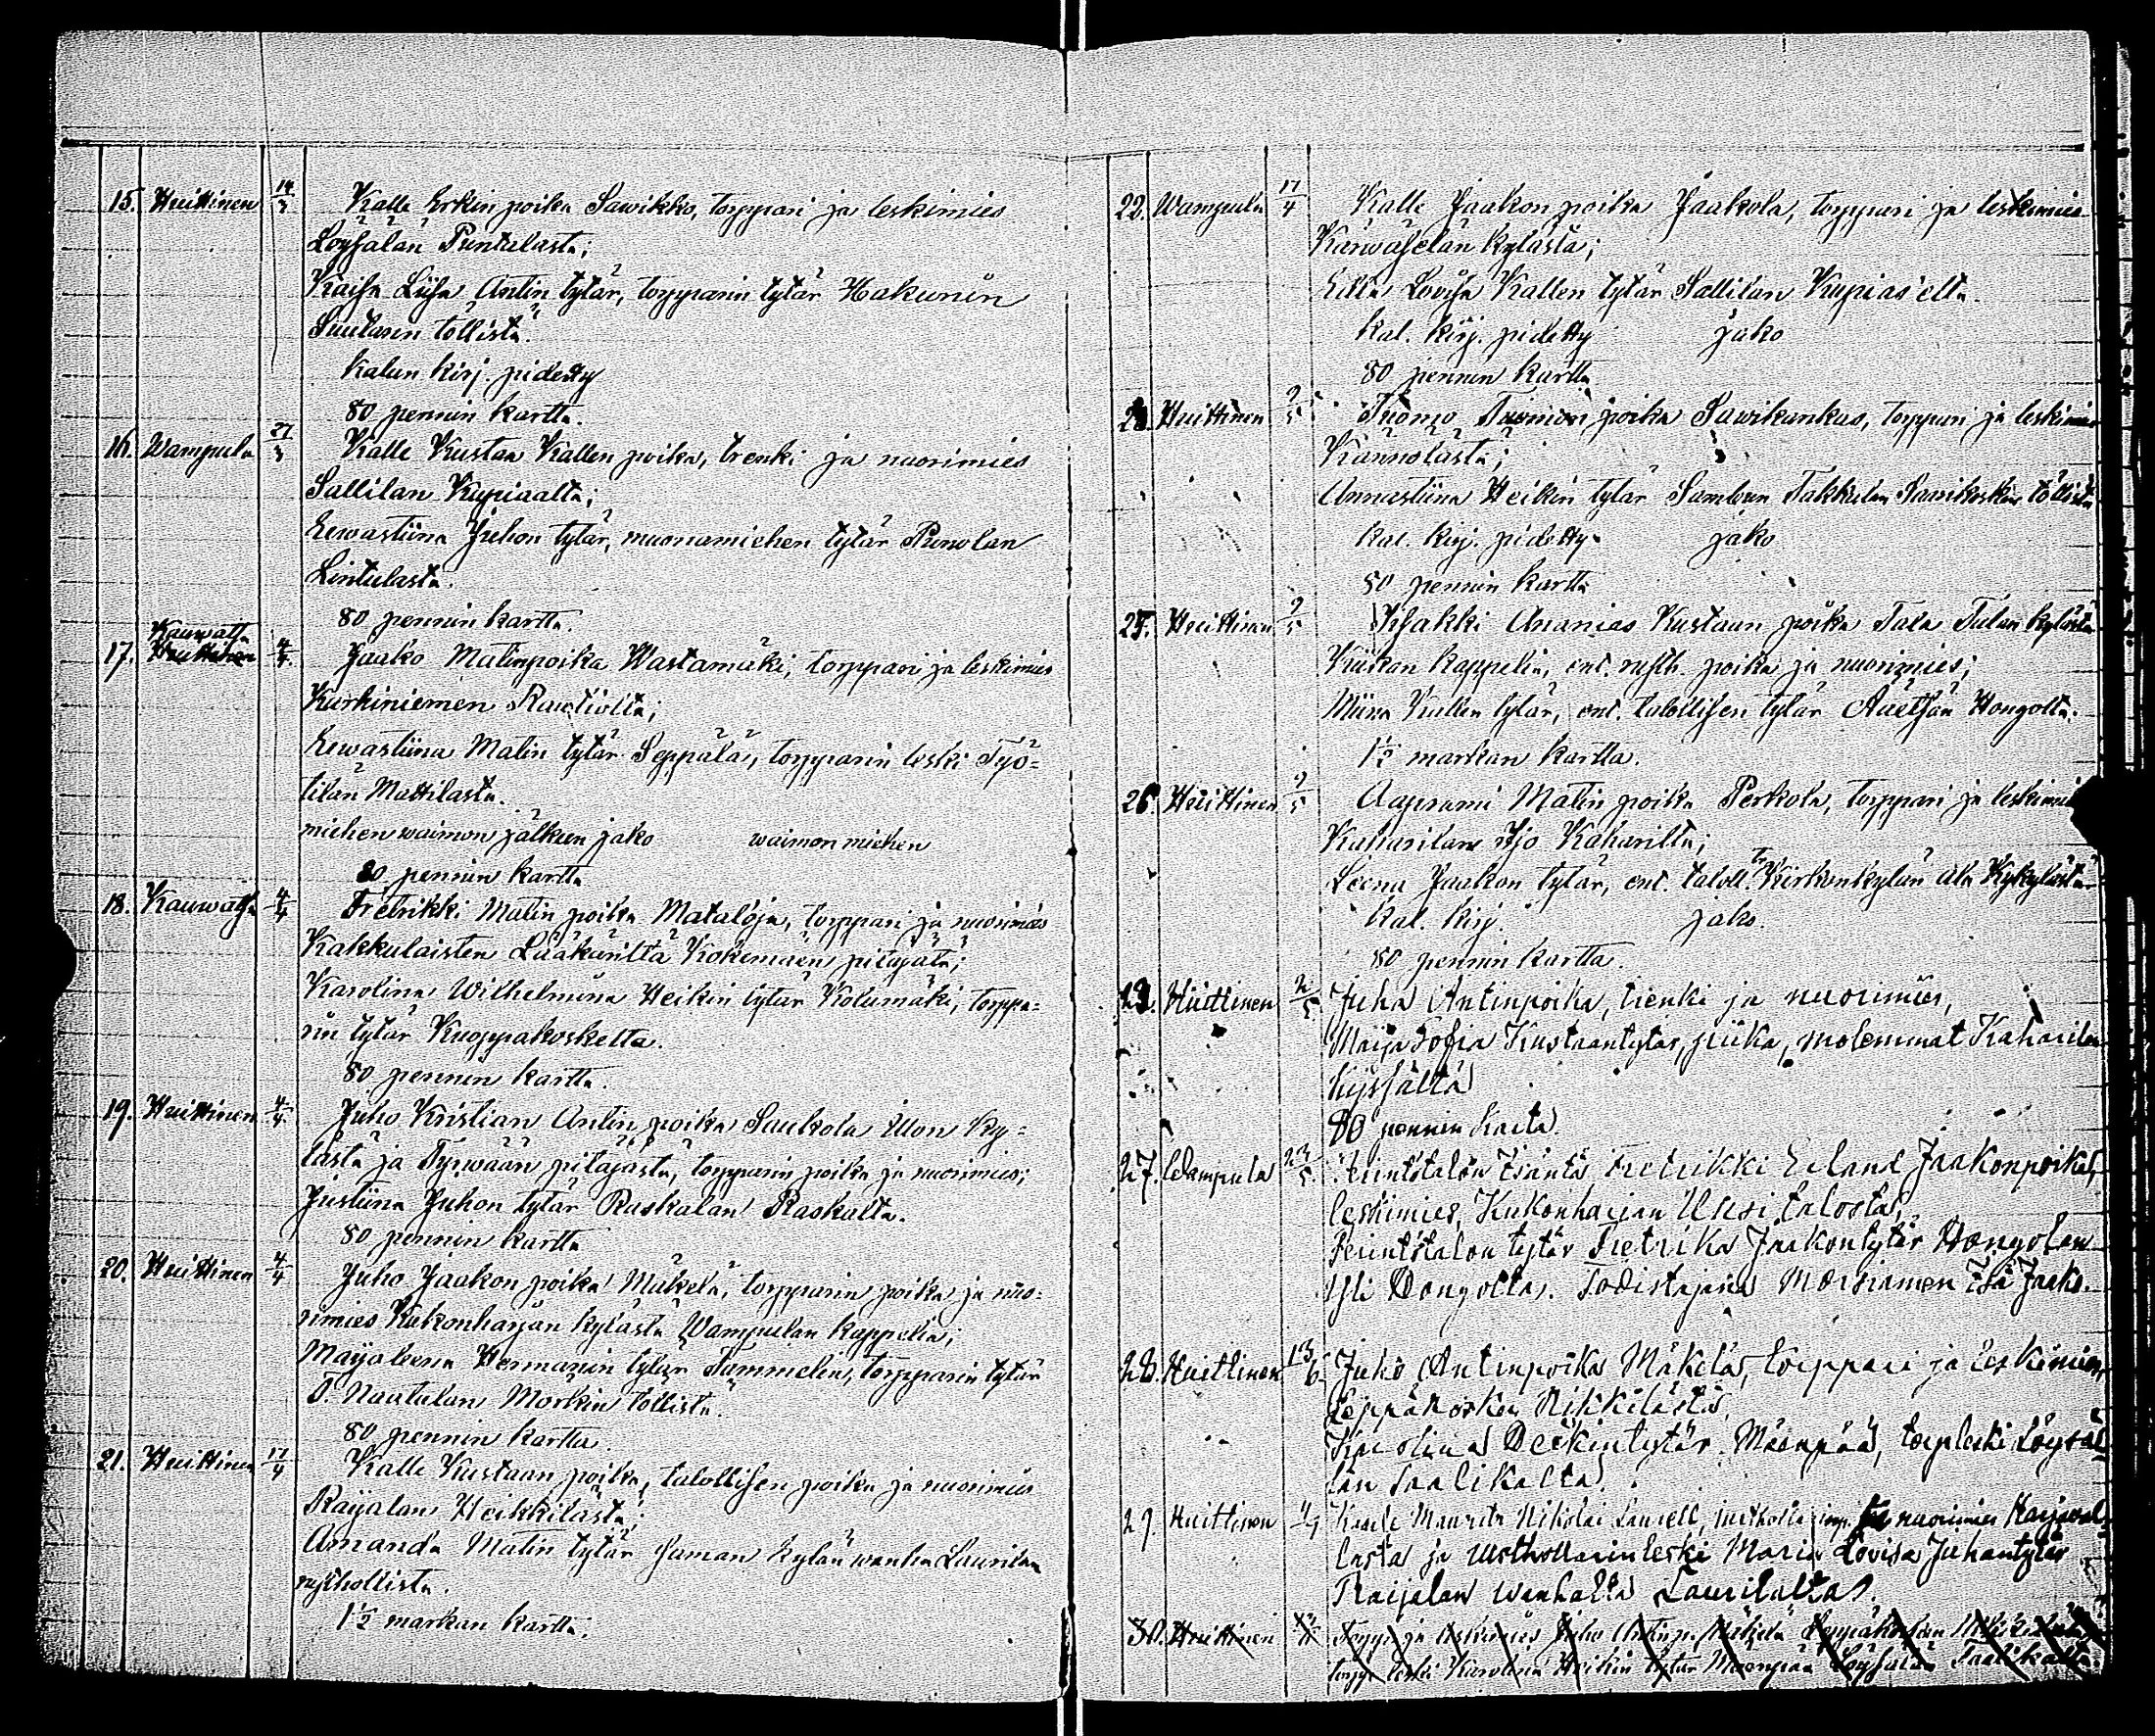 15. Huittinen 14/3 Kalle Erkin poika Sawikko, torppari ja leskimies
Löysälän Puntalasta;
Kaisa Liisa Antin tytär, torpparin tytär Hakunin
Suutarin töllistä.
kalun kirj. pidetty
80 pennin kartta.
16. Wampula 27/3 Kalle Kustaa Kallen poika, trenki ja nuorimies
Sallilan Kupiaalta;
Eewastiina Juhon tytär, muonamiehen tytär Punolan
Lintulasta.
80 pennin kartta.
Kauwatsa
17. Huittinen 4/4 Jaako Matinpoika Wastamäki, torppari ja leskimies
Karhiniemen Rautiolta;
Eewastiina Matin tytär Seppälä, torpparin leski Työ=
tilän Mattilasta.
miehen waimon jälkeen jako waimon miehen
80 pennin kartta
18. Kauwatsa 4/4 Fretrikki Matin poika Mataloja, torppari ja nuorimies
Kakkulaisten Lääkäriltä Kokemäen pitäjätä;
Karolina Wilhelmiina Heikin tytär Kolumäki, torppa=
rin tytär Kuoppakoskelta.
80 pennin kartta.
19. Huittinen 4/4 Juho Kristian Antin poika Saukola Illon ky=
lästä ja Tyrwään pitäjästä, torpparin poika ja nuorimies;
Justiina Juhon tytär Raskalan Raskalta.
80 pennin kartta
20. Huittinen 4/4 Juho Jaakon poika Mäkelä, torpparin poika ja nuo=
rimies Kukonharjan kylästä Wampulan kappelia;
Maijaleena Hermanin tytär Tammelin, torpparin tytär
T. Nautulan Morkin töllistä.
80 pennin kartta.
21. Huittinen 17/4 Kalle Kustaan poika, talollisen poika ja nuorimies
Raijalan Heikkilästä;
Amanda Matin tytär saman kylän wanha Laurilan
rusthollista.
1½ markan kartta.
22. Wampula 17/4 Kalle Jaakon poika Jaakola, torppari ja leskimies
Karwaselan kylästä;
Edla Lovisa Kallen tytär Sallilan Kupias'elta.
kal. kirj. pidetty jako
80 pennin kartta
Huittinen 2/5 Tuomo Tuomon poika Sawikankas, torppari ja leskimies
Kännölästä;
Annastiina Heikin tytär Sambun Takkulan töllistä
kal. kirj. pidetty jako
80 pennin kartta
25. Huittinen 2/5 Isakki Ananias Kustaan poika Tala Talan kylästä
Kiikan kappelia, ent. rusth. poika ja nuorimies;
Miina Kallen tytär, ent. talollisen tytär Äetsän Hongolta.
1½ markan kartta.
26. Huittinen 2/5 Aaprami Matin poika Perkola, torppari ja leskimies
Kaharilan Iso Kaharilta;
Leena Jaakon tytär, ent. taloll. Tr Kirkonkylän ala Kykylästä
Kal. kirj. jako.
80 pennin kartta.
Huittinen 2/5 Juha Antinpoika, trenki ja nuorimies,
Maija Sofia Kustaantytär, piika, molemmat Kaharilan
Kyssältä
80 pennin karta.
27. Wampula 23/5 Perintötalon Isäntä Fretrikki Erland Jaakonpoika,
leskimies, Kukonharjan Uusi talosta,
Perintötalon tytär Fretrika Jaakontytär Hongolan
Yli Hongolta. Todistajana Morsiamen isä Jaako.
28. Huittinen 13/6 Juho Antinpoika Mäkelä, torppari ja leskimies,
Leppäkosken Nikkilästä,
Karolina Heikintytär Määnpää, torp.leski Löysä
län Taalikalta.
29. Huittinen Kaale Maurits Nikolai Laurell, nuorimies Karjaral
lasta ja Rusthollarinleski Maria Lovisa Juhantytär
Raijalan wanhalta Laurilalta.
30. Huittinen Torp. ja leskimies Juho Antinp. Mäkelä Leppäkosken Nikkilästä
torp. leski Karolina Heikin tytär Määnpää Löysälän Taalikalta.